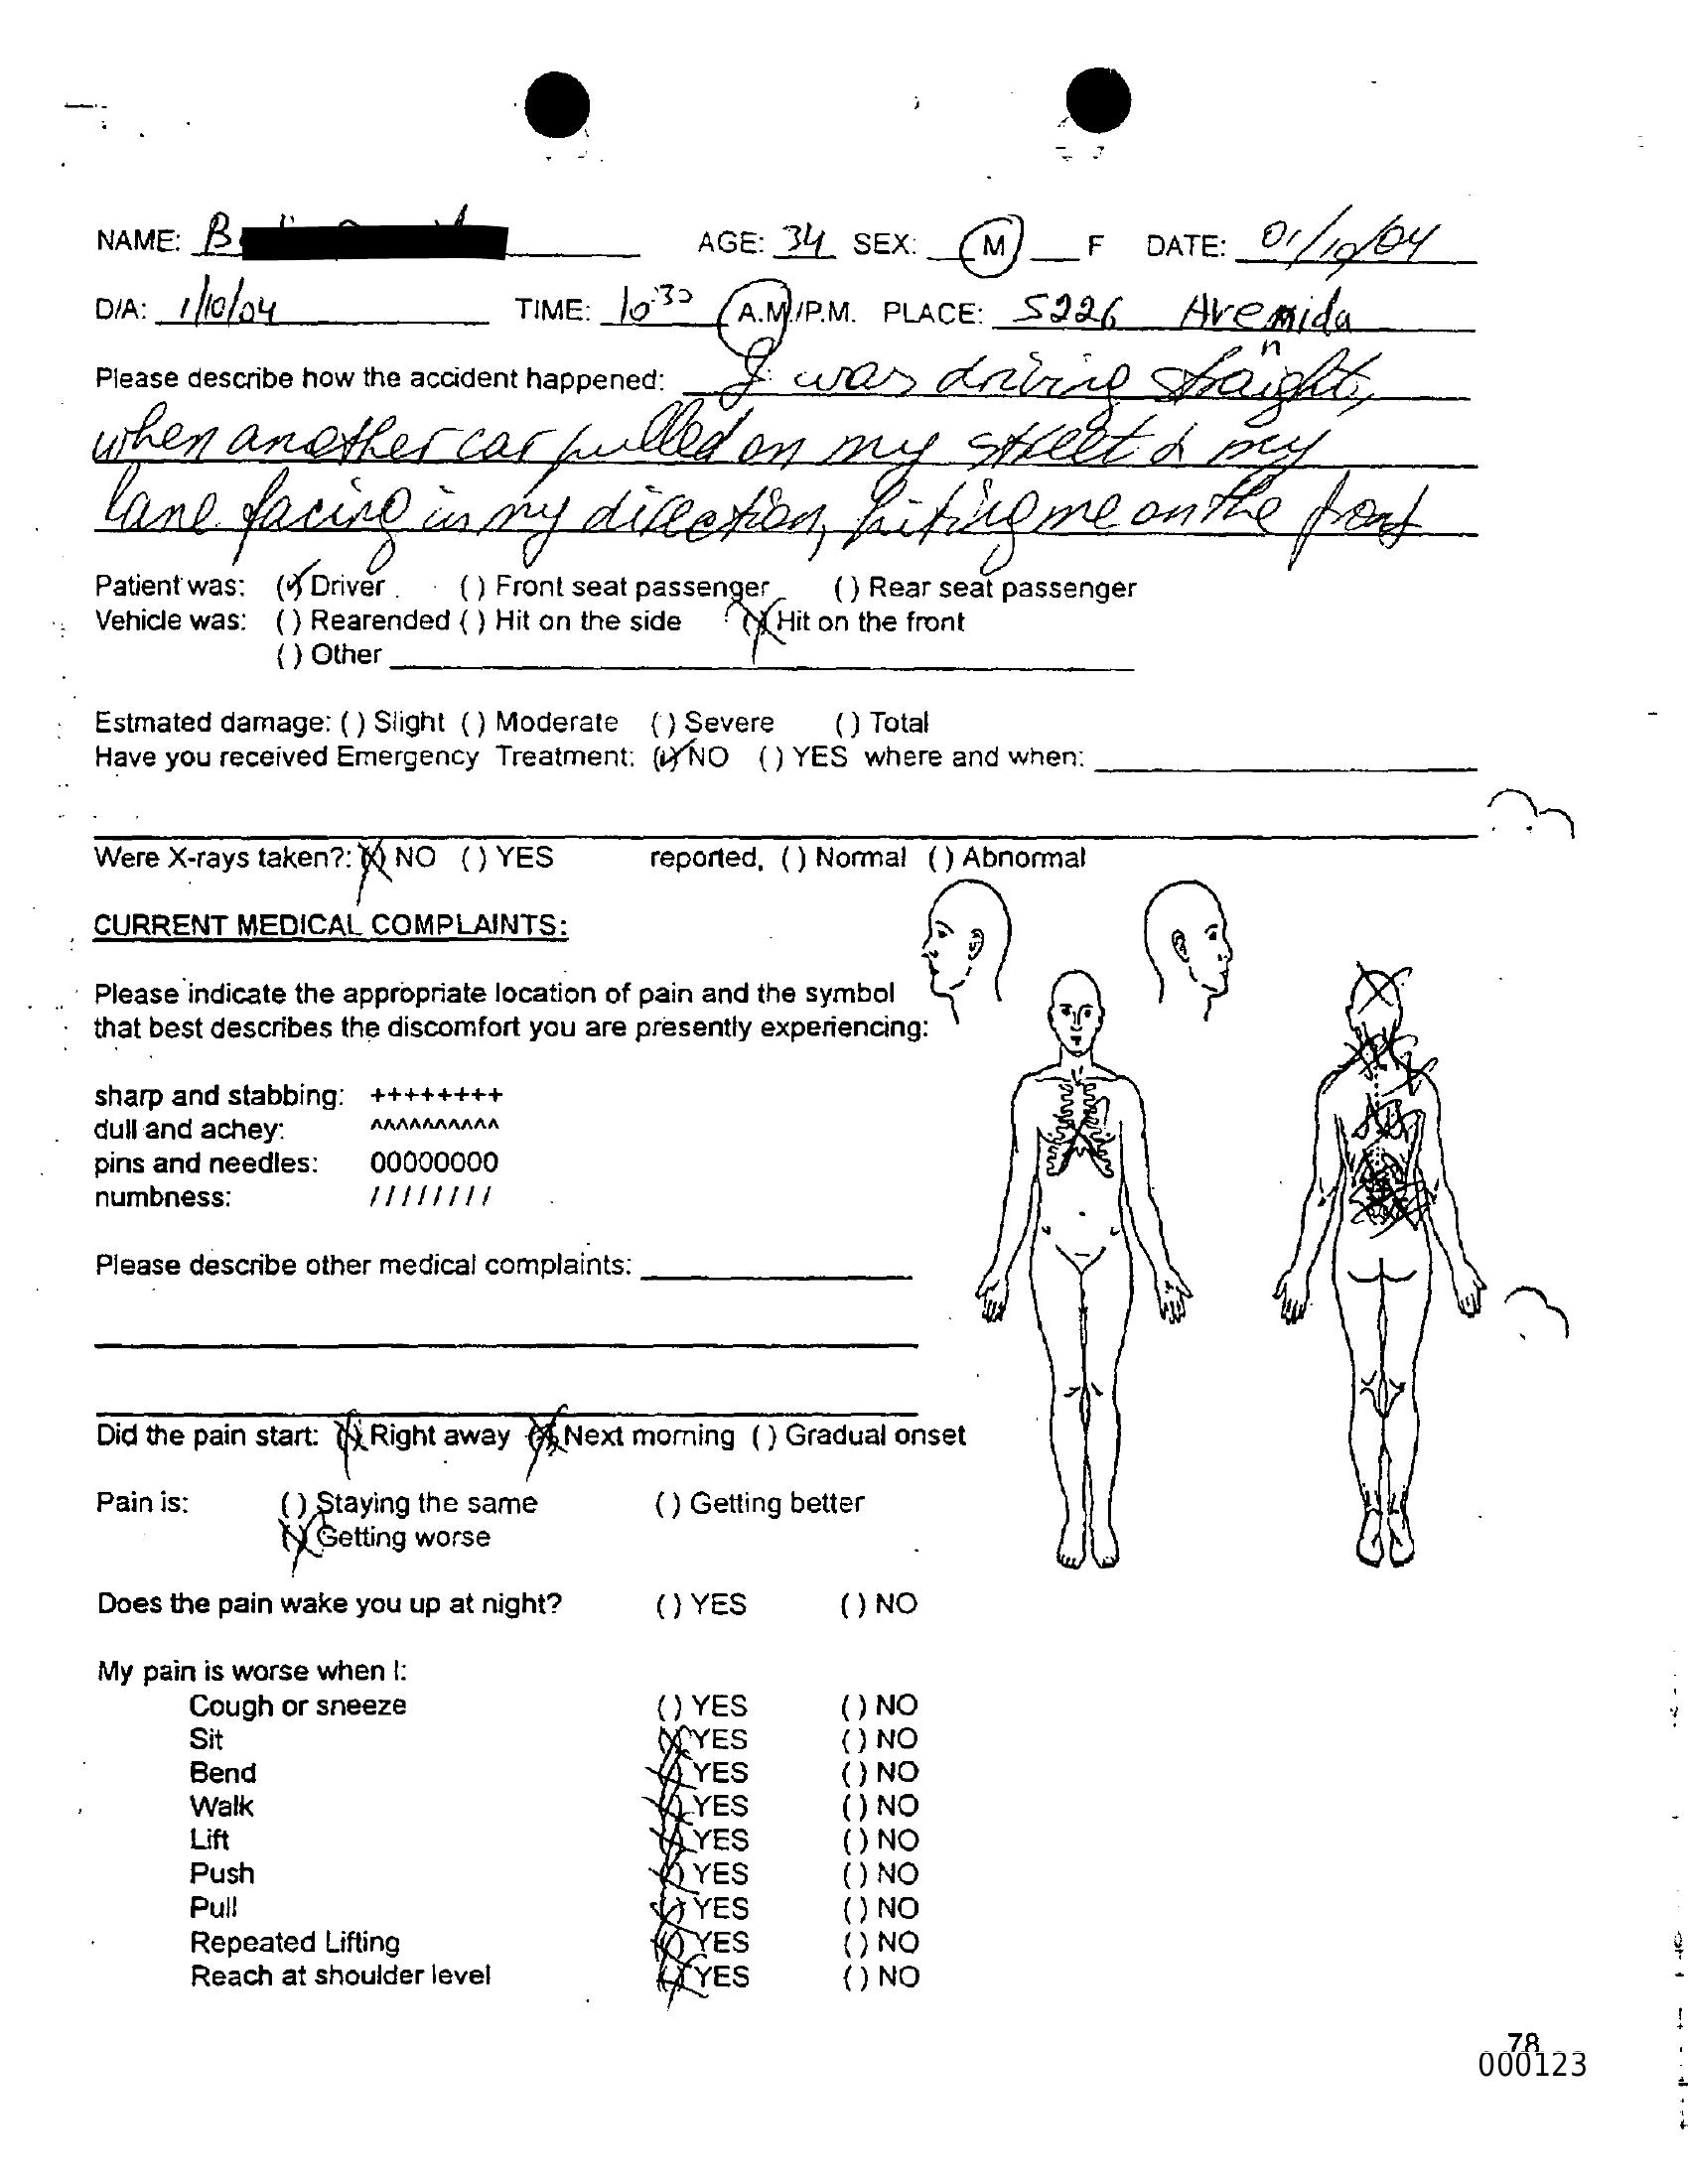 NAME: B AGE: 34 SEX: M F DATE: 01/10/04
D/A: 1/10/04 TIME: 10:30 A.M./P.M. PLACE: 5226 Avenida
Please describe how the accident happened: I was driving straight,
when another car pulled on my street & my
lane facing in my direction, hiting me on the front
Patient was: (✓) Driver ( ) Front seat passenger ( ) Rear seat passenger
Vehicle was: ( ) Rearended ( ) Hit on the side (X) Hit on the front
( ) Other
Estmated damage: ( ) Slight ( ) Moderate ( ) Severe ( ) Total
Have you received Emergency Treatment: (✓) NO ( ) YES where and when:
Were X-rays taken?: (X) NO ( ) YES reported, ( ) Normal ( ) Abnormal
CURRENT MEDICAL COMPLAINTS:
Please indicate the appropriate location of pain and the symbol
that best describes the discomfort you are presently experiencing:
sharp and stabbing: ++++++++
dull and achey: ^^^^^^^^^^
pins and needles: 00000000
numbness: ////////
Please describe other medical complaints:
Did the pain start: (X) Right away (X) Next morning ( ) Gradual onset
Pain is: ( ) Staying the same ( ) Getting better
(X) Getting worse
Does the pain wake you up at night? ( ) YES ( ) NO
My pain is worse when I:
Cough or sneeze ( ) YES ( ) NO
Sit (X) YES ( ) NO
Bend (X) YES ( ) NO
Walk (X) YES ( ) NO
Lift (X) YES ( ) NO
Push (X) YES ( ) NO
Pull (X) YES ( ) NO
Repeated Lifting (X) YES ( ) NO
Reach at shoulder level (X) YES ( ) NO
78
000123